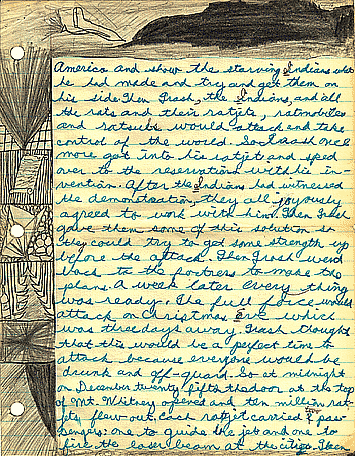 America and show the starving Indians what
he had made and try and get them on
his side. Then Trash, the Indians, and all
the rats and their ratjets, ratmobiles
and ratsubs would attack and take
control of the world. So Trash once
more got into his ratjet and sped
over to the reservation with his in-
vention. After the Indians had witnessed
the demonstration, they all joyously
agreed to work with him. Then Trash
gave them some of this solution so
they could try to get some strength up
before the attack. Then Trash went
back to the fortress to make the
plans. A week later every thing
was ready. The full force would
attack on christmas Eve which
was three days away. Trash thought
that this would be a perfect time to
attack because everyone would be
drunk and off-guard. So at midnight
on December twenty fifth the door at the top
of Mt. Whitney opened and ten million rat-
jets flew out. Each ratjet carried two pas-
sengers: one to guide the jet and one to
fire the laser beam at the citys. Then